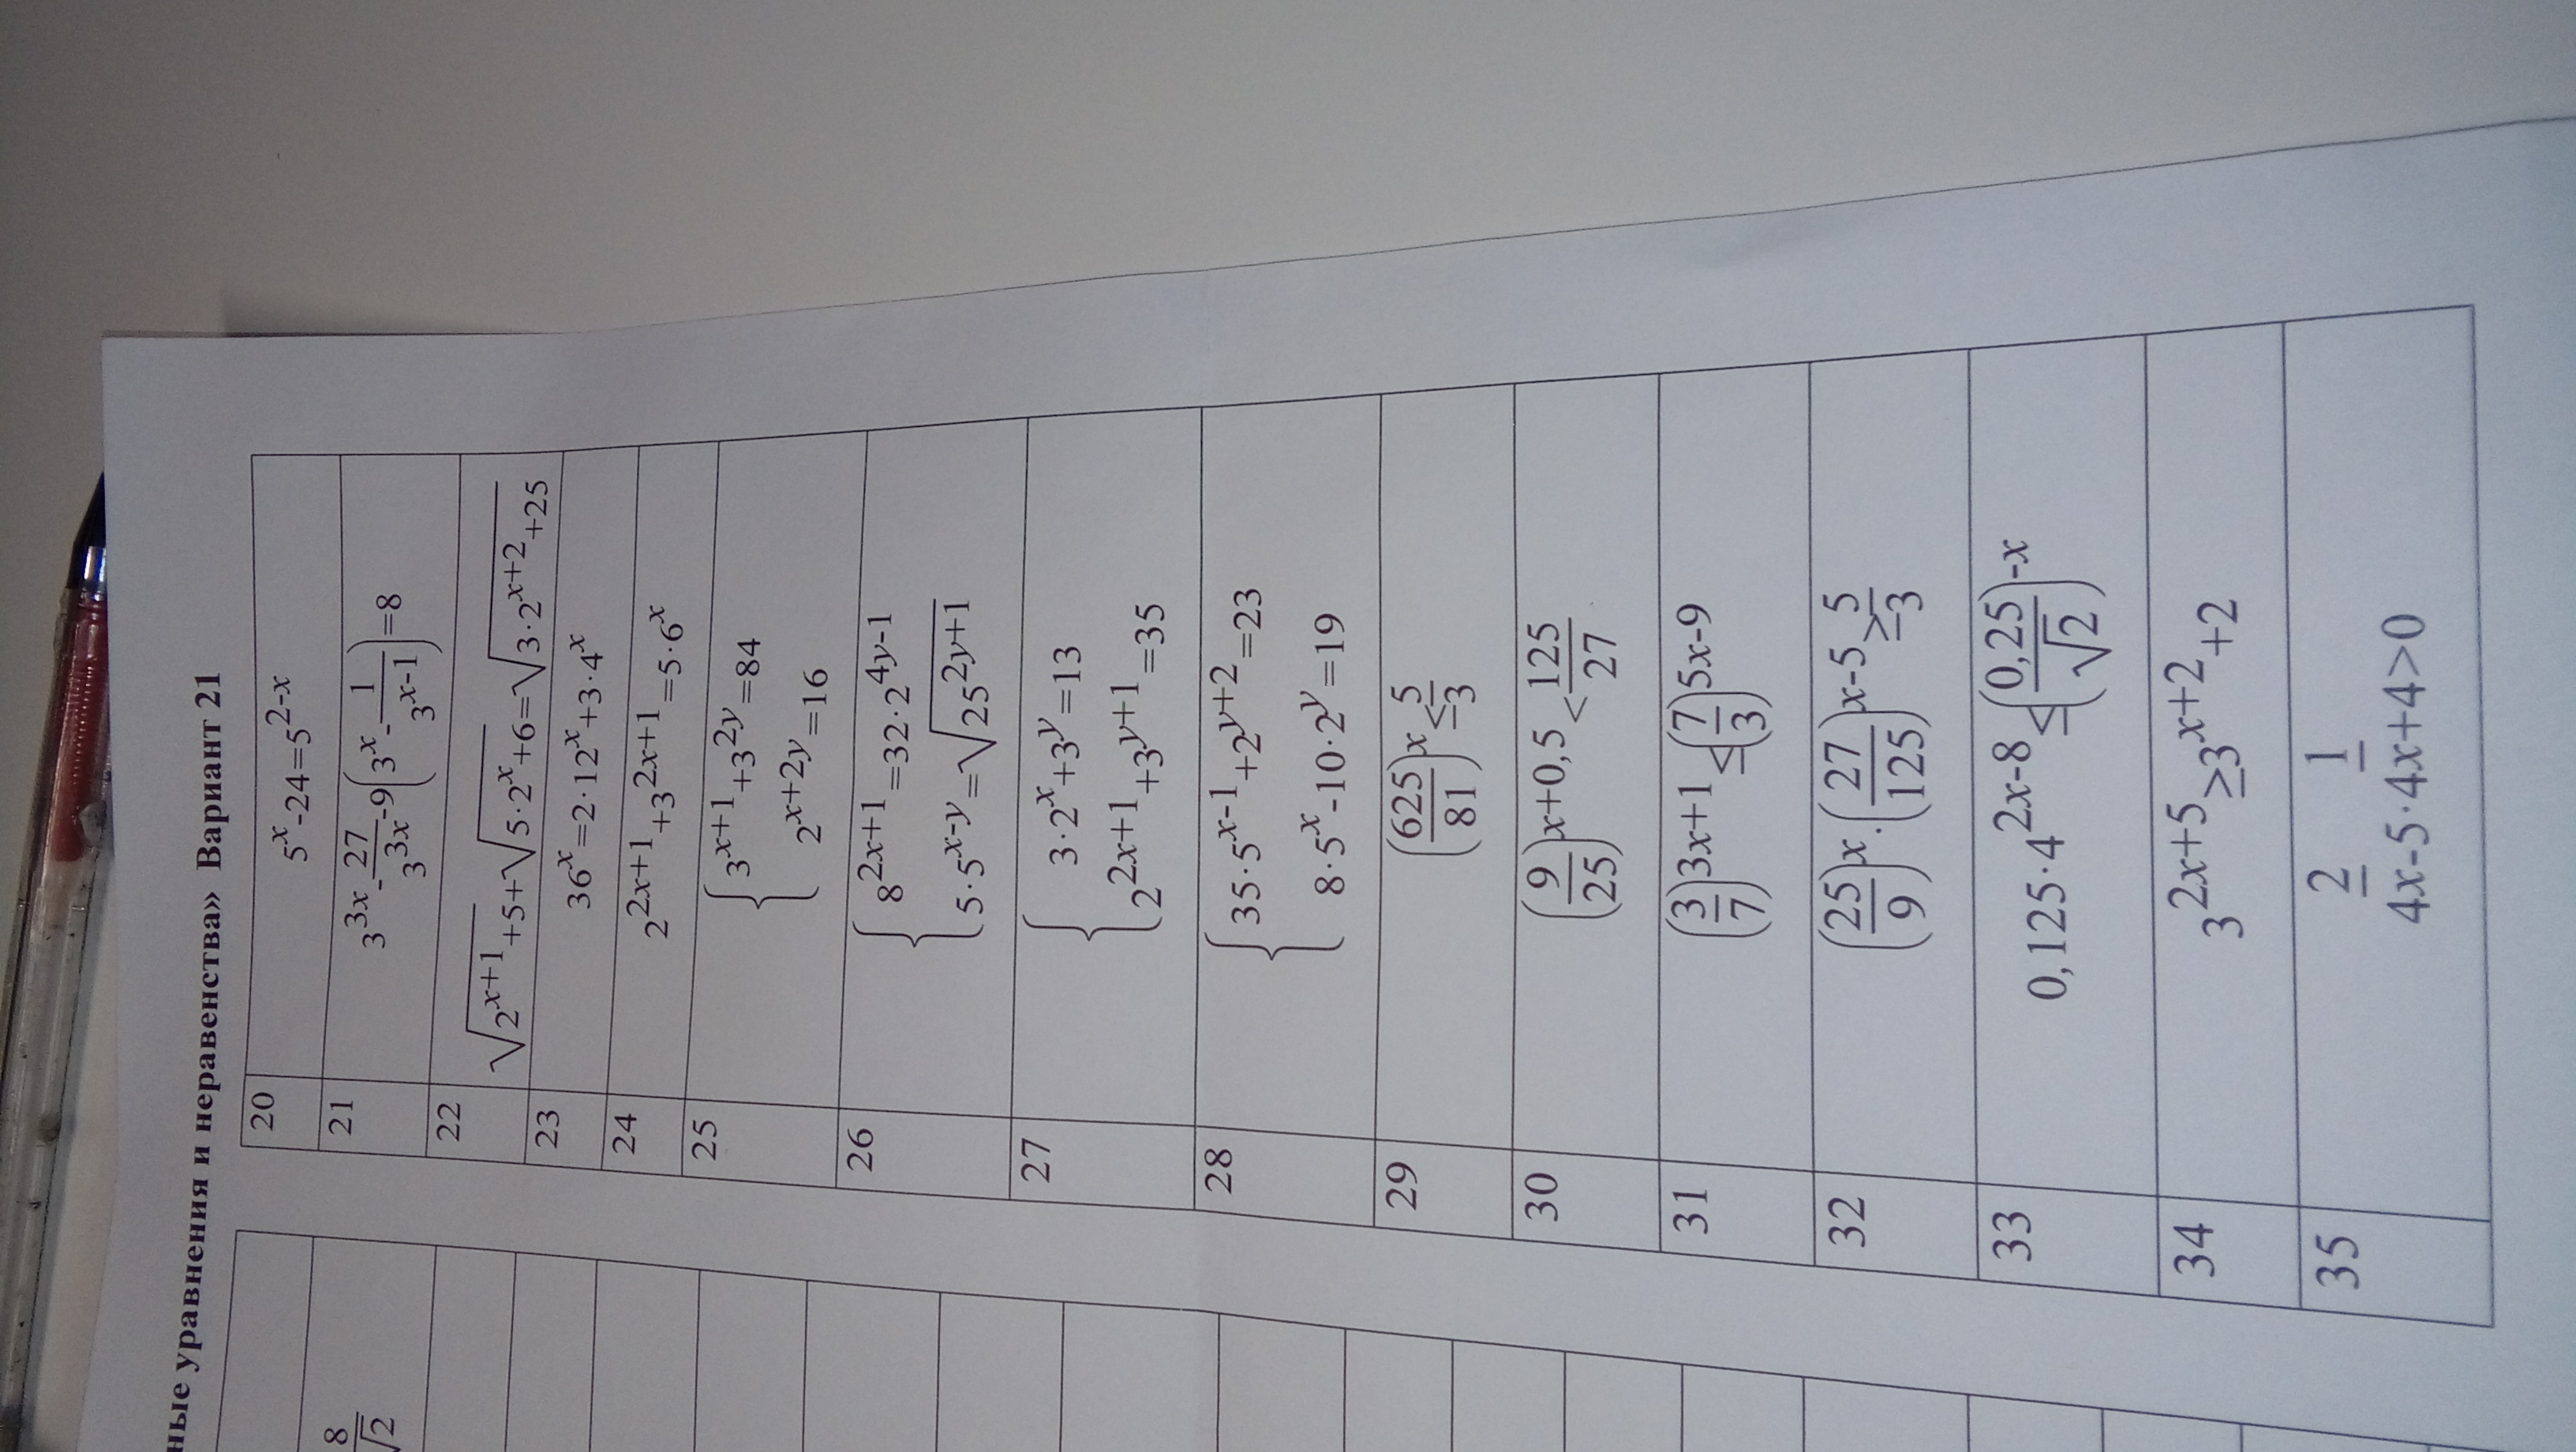 ные уравнения и неравенства» Вариант 21
8
√2
20 5^x-24=5^(2-x)
21 3^(3x)-27/3^(3x)-9(3^x-1/3^(x-1))=8
22 √(2^(x+1)+5)+√(5·2^x+6)=√(3·2^(x+2)+25)
23 36^x=2·12^x+3·4^x
24 2^(2x+1)+3^(2x+1)=5·6^x
25 { 3^(x+1)+3^(2y)=84
2^(x+2y)=16
26 { 8^(2x+1)=32·2^(4y-1)
5·5^(x-y)=√(25^(2y+1))
27 { 3·2^x+3^y=13
2^(2x+1)+3^(y+1)=35
28 { 35·5^(x-1)+2^(y+2)=23
8·5^x-10·2^y=19
29 (625/81)^x≤5/3
30 (9/25)^(x+0,5)<125/27
31 (3/7)^(3x+1)≤(7/3)^(5x-9)
32 (25/9)^x·(27/125)^(x-5)≥5/3
33 0,125·4^(2x-8)≤(0,25/√2)^(-x)
34 3^(2x+5)≥3^(x+2)+2
35 2 1
4x-5·4x+4>0